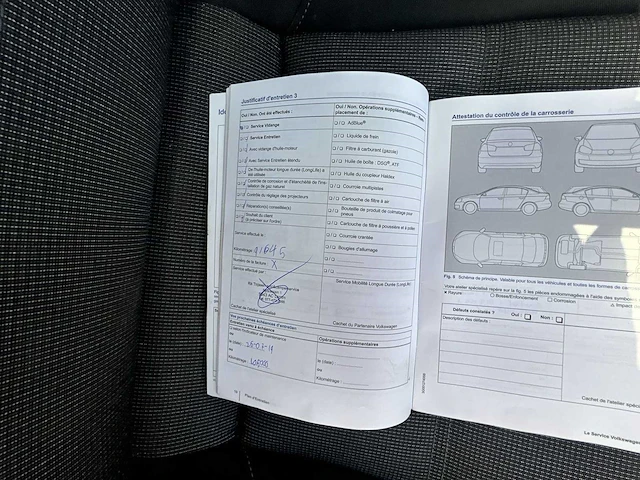 Justificatif d'entretien 3
Oui / Non. Ont été effectués :
Service Vidange
Service Entretien
Avec vidange d'huile-moteur
Avec Service Entretien étendu
De l'huile-moteur longue durée (LongLife) a été utilisée
Contrôle de corrosion et d'étanchéité de l'installation de gaz naturel
Contrôle du réglage des projecteurs
Réparation(s) conseillée(s)
Souhait du client
(à préciser sur l'ordre)
Service effectué le :
Kilométrage :
Numéro de la facture : X
Service effectué par
Cachet de l'atelier spécialisé
Oui / Non. Opérations supplémentaires
placement de :
AdBlue®
Liquide de frein
Filtre à carburant (gazole)
Huile de boîte : DSG®, ATF
Huile du coupleur Haldex
Courroie multipistes
Cartouche de filtre à air
Bouteille de produit de colmatage pour pneus
Cartouche de filtre à poussière et à pollen
Courroie crantée
Bougies d'allumage
Service Mobilité Longue Durée (LongLife)
Cachet du Partenaire Volkswagen
Vos prochaines échéances d'entretien
Entretien venu à échéance
le (date) :
ou
Kilométrage :
Opérations supplémentaires
le (date) :
ou
Kilométrage :
Plan d'Entretien
Attestation du contrôle de la carrosserie
Fig. 5 Schéma de principe. Valable pour tous les véhicules et toutes les formes de
Votre atelier spécialisé repère sur la fig. 5 les pièces endommagées à l'aide des
x Rayure
O Bosse/Enfoncement
□ Corrosion
Δ Impact
Défauts constatés ? Oui : Non :
Description des défauts :
Cachet de l'atelier
Le Service Volkswagen